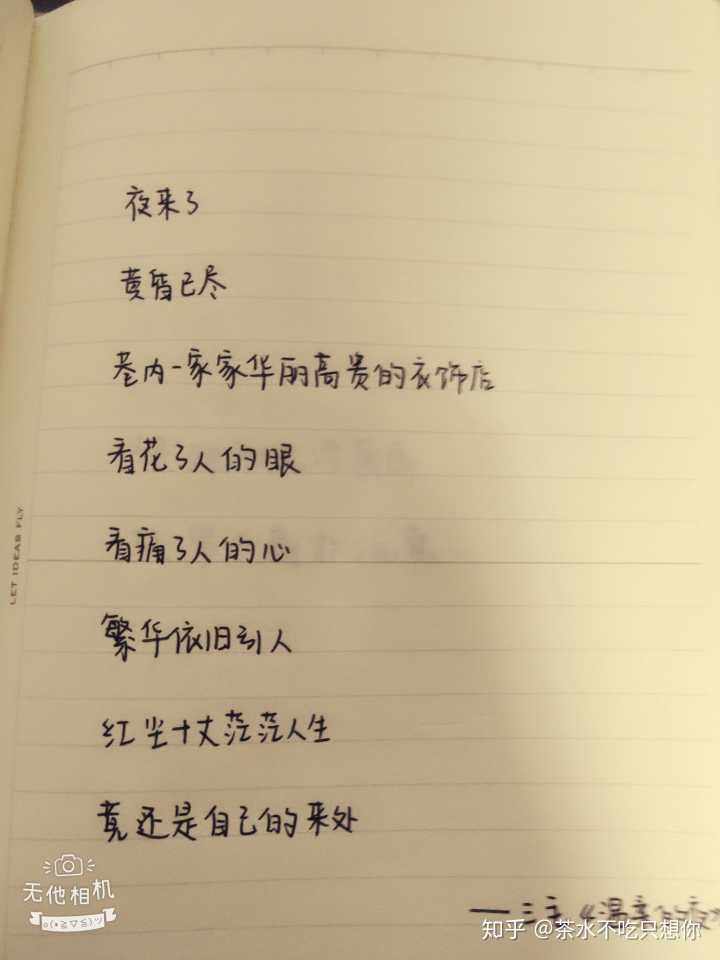 夜来了
黄昏已尽
巷内一家家华丽高贵的衣饰店
看花了人的眼
看痛了人的心
繁华依旧引人
红尘十丈茫茫人生
竟还是自己的来处
——三毛《温柔的夜
LET IDEAS FLY
无他相机
o(*≧▽≦)ツ
知乎 @茶水不吃只想你